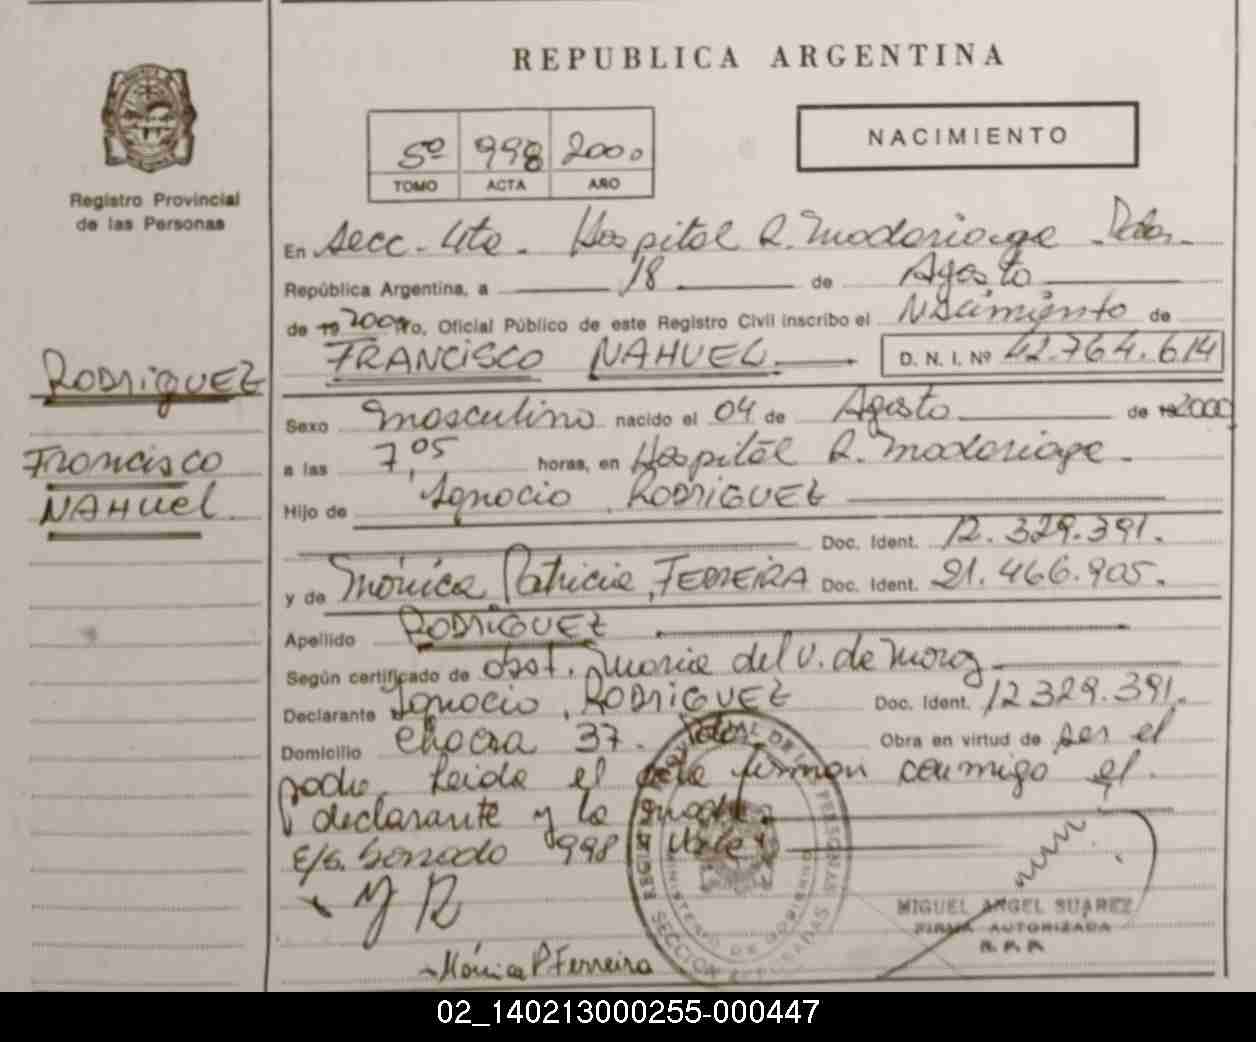 REPUBLICA ARGENTINA
Registro Provincial
de las Personas
5º 998 2000
TOMO ACTA AÑO
NACIMIENTO
En Secc. 4ta. Hospital R. Madariaga
República Argentina, a 18 de Agosto
de 19 2000 Yo, Oficial Público de este Registro Civil inscribo el Nacimiento de
FRANCISCO NAHUEL D. N. I. Nº 42.764.614
RODRIGUEZ
Francisco
NAHUEL
Sexo masculino nacido el 04 de Agosto de 19 2000
a las 7,05 horas, en Hospital R. Madariaga.
Hijo de Ignacio RODRIGUEZ
Doc. Ident. 12.329.391.
y de Mónica Patricia FERREIRA Doc. Ident. 21.466.905.
Apellido RODRIGUEZ
Según certificado de obst. Maria del V. de Moraz
Declarante Ignacio RODRIGUEZ Doc. Ident. 12.329.391.
Domicilio Chacra 37. Pdas. Obra en virtud de ser el
padre. Leida el acta firman conmigo el
declarante y la madre
E/S. borrado 998 Vale
MR
Mónica P. Ferreira
REGISTRO PROVINCIAL DE LAS PERSONAS
MINISTERIO DE GOBIERNO
SECCION POSADAS
MIGUEL ANGEL SUAREZ
FIRMA AUTORIZADA
R. P. P.
02_140213000255-000447